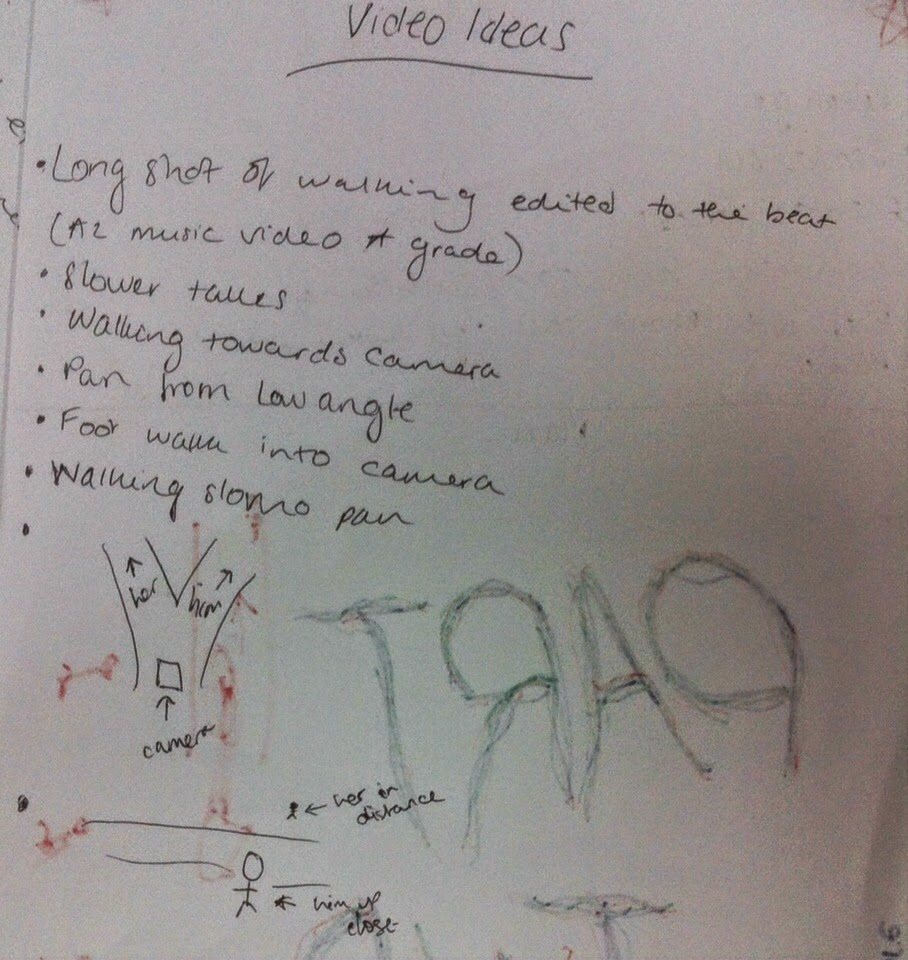 Video Ideas
• Long shot of walking edited to the beat
(A2 music video A grade)
• Slower takes
• Walking towards camera
• Pan from Low angle
• Foot walk into camera
• Walking slomo pan
•
her him
camera
•
her in
distance
him up
close
PART